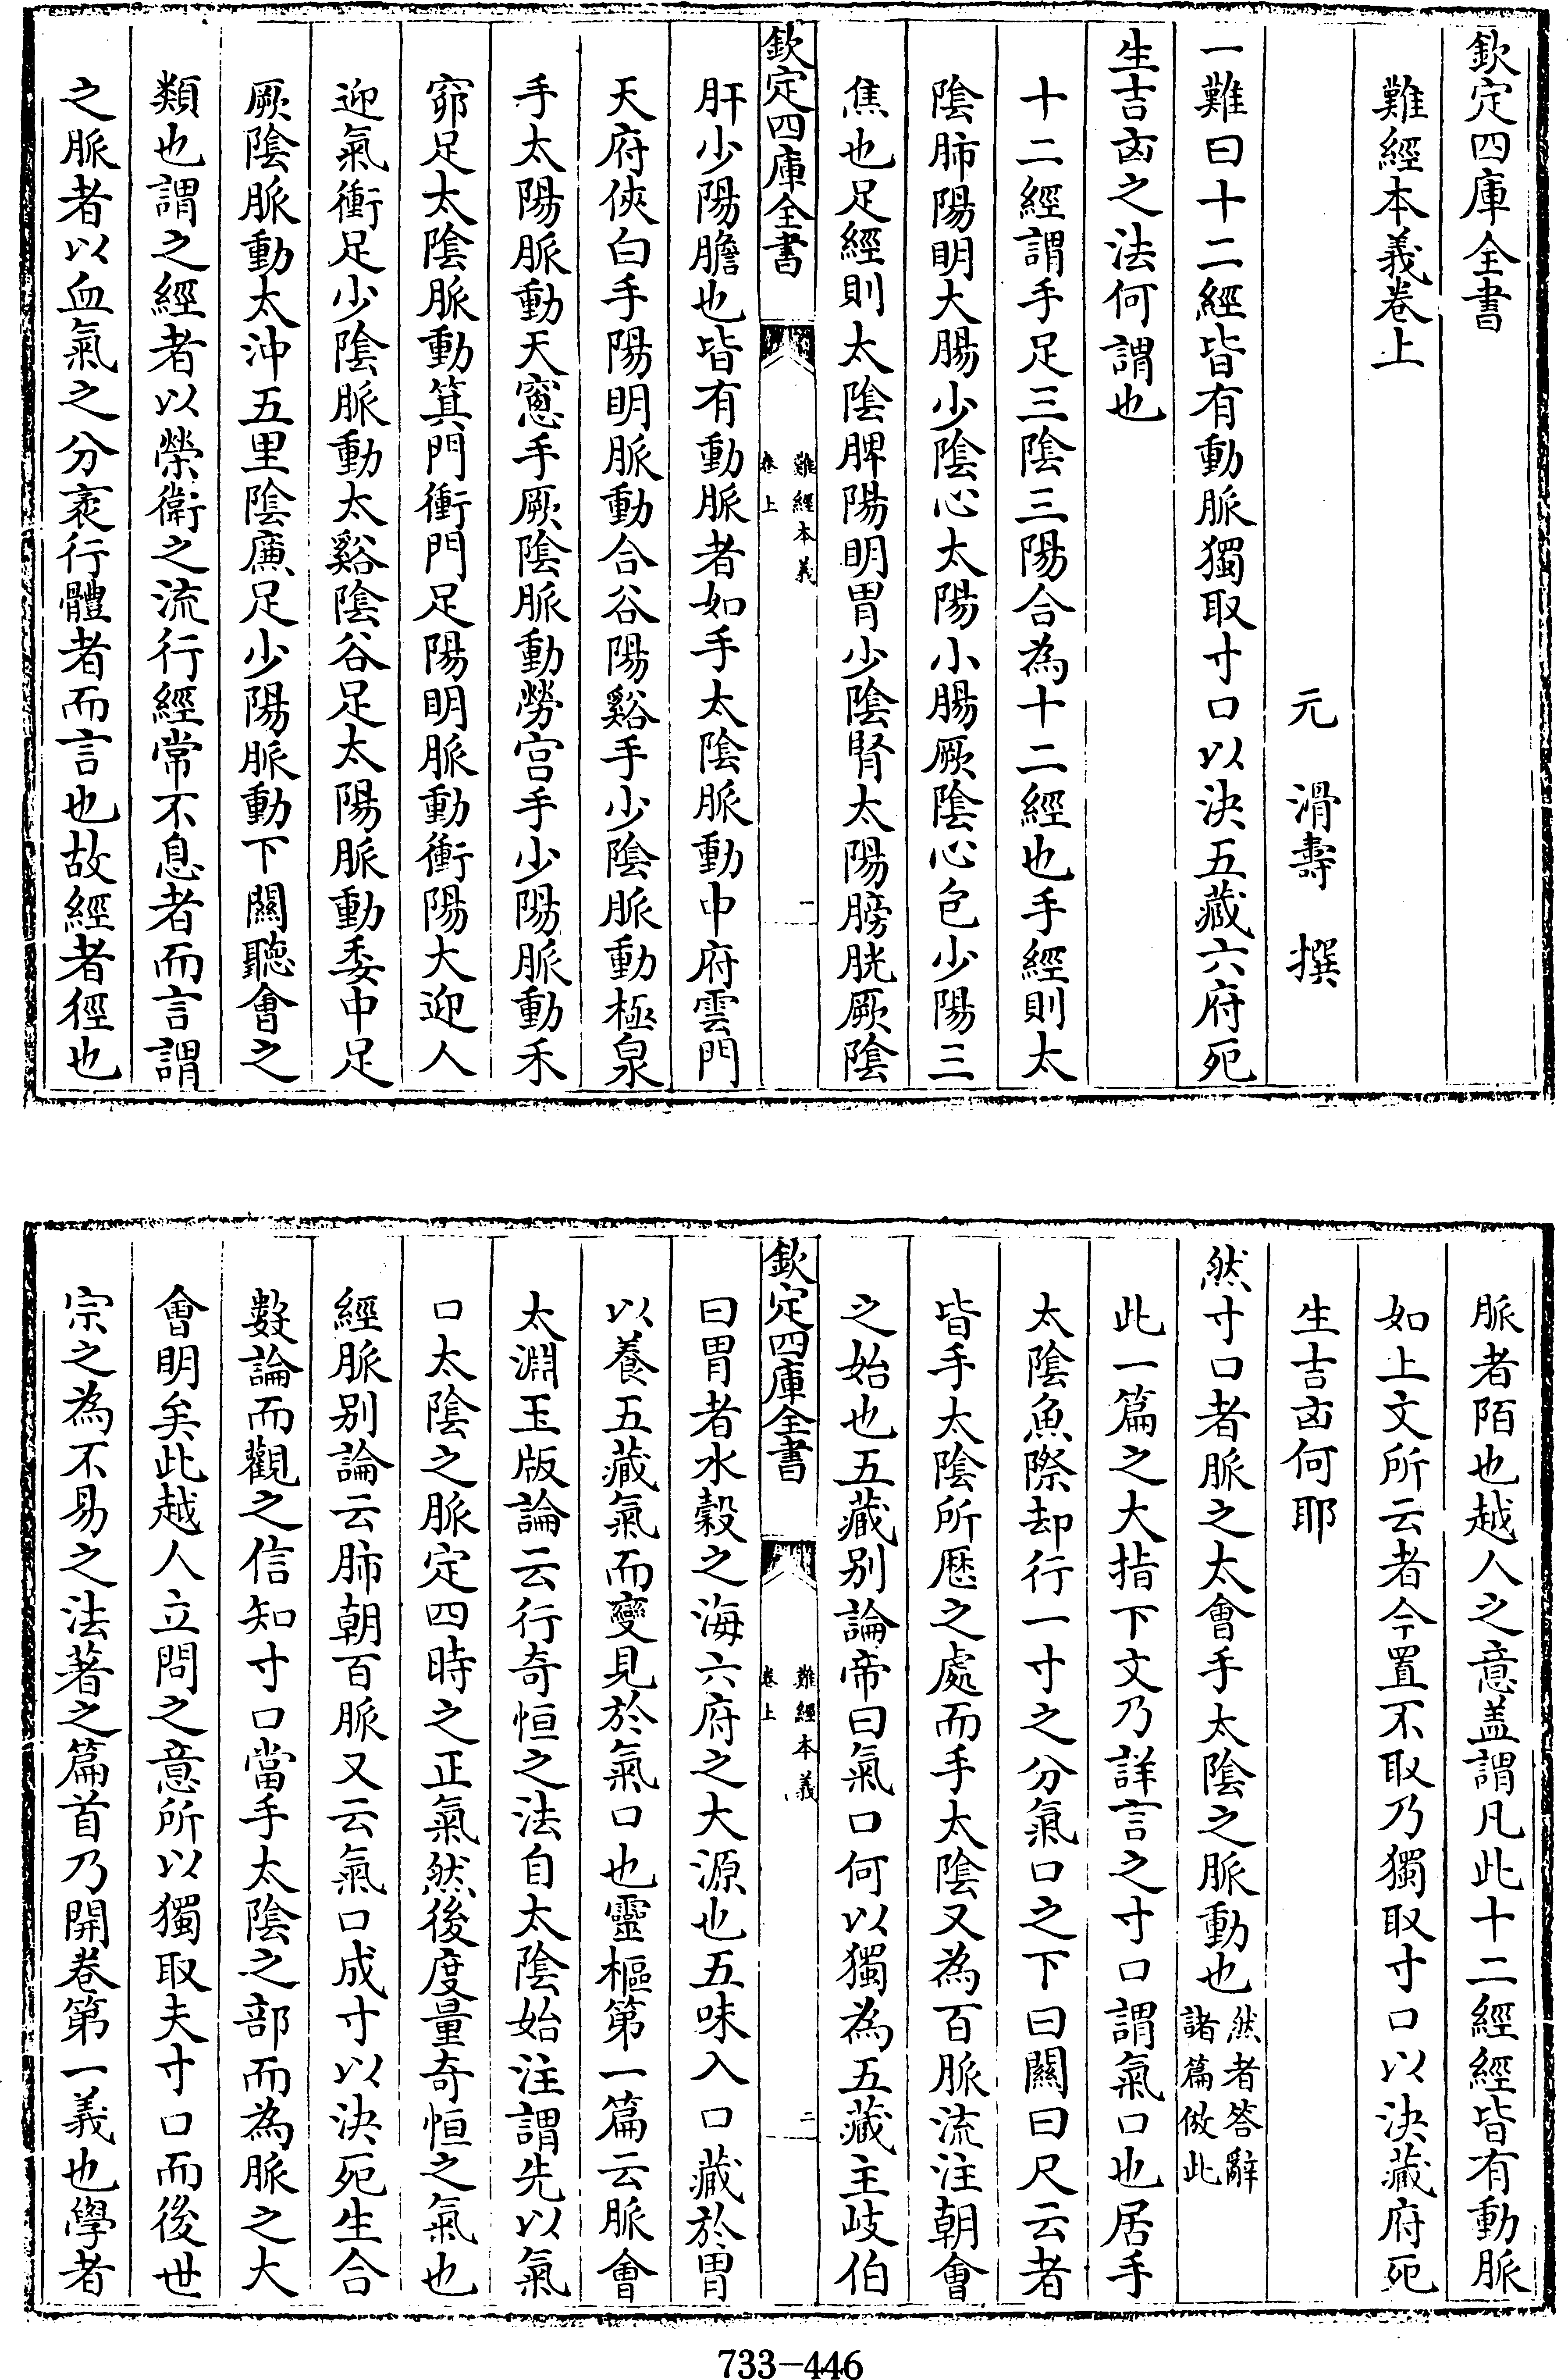 欽定四庫全書
難經本義卷上
元 滑壽 撰
一難曰十二經皆有動脈獨取寸口以決五藏六府死
生吉凶之法何謂也
十二經謂手足三陰三陽合為十二經也手經則太
陰肺陽明大腸少陰心太陽小腸厥陰心包少陽三
焦也足經則太陰脾陽明胃少陰腎太陽膀胱厥陰
欽定四庫全書
難經本義
卷上
一
肝少陽膽也皆有動脈者如手太陰脈動中府雲門
天府俠白手陽明脈動合谷陽谿手少陰脈動極泉
手太陽脈動天窻手厥陰脈動勞宫手少陽脈動禾
窌足太陰脈動箕門衝門足陽明脈動衝陽大迎人
迎氣衝足少陰脈動太谿陰谷足太陽脈動委中足
厥陰脈動太沖五里陰廉足少陽脈動下關聽會之
類也謂之經者以榮衛之流行經常不息者而言謂
之脈者以血氣之分衺行體者而言也故經者徑也
脈者陌也越人之意盖謂凡此十二經經皆有動脈
如上文所云者今置不取乃獨取寸口以決藏府死
生吉凶何耶
然寸口者脈之太會手太陰之脈動也然者答辭
諸篇倣此
此一篇之大指下文乃詳言之寸口謂氣口也居手
太陰魚際却行一寸之分氣口之下曰關曰尺云者
皆手太陰所歷之處而手太陰又為百脈流注朝會
之始也五藏别論帝曰氣口何以獨為五藏主歧伯
欽定四庫全書
難經本義
卷上
二
曰胃者水穀之海六府之大源也五味入口藏於胃
以養五藏氣而變見於氣口也靈樞第一篇云脈會
太淵玉版論云行奇恒之法自太陰始注謂先以氣
口太陰之脈定四時之正氣然後度量奇恒之氣也
經脈别論云肺朝百脈又云氣口成寸以決死生合
數論而觀之信知寸口當手太陰之部而為脈之大
會明矣此越人立問之意所以獨取夫寸口而後世
宗之為不易之法著之篇首乃開卷第一義也學者
733-446